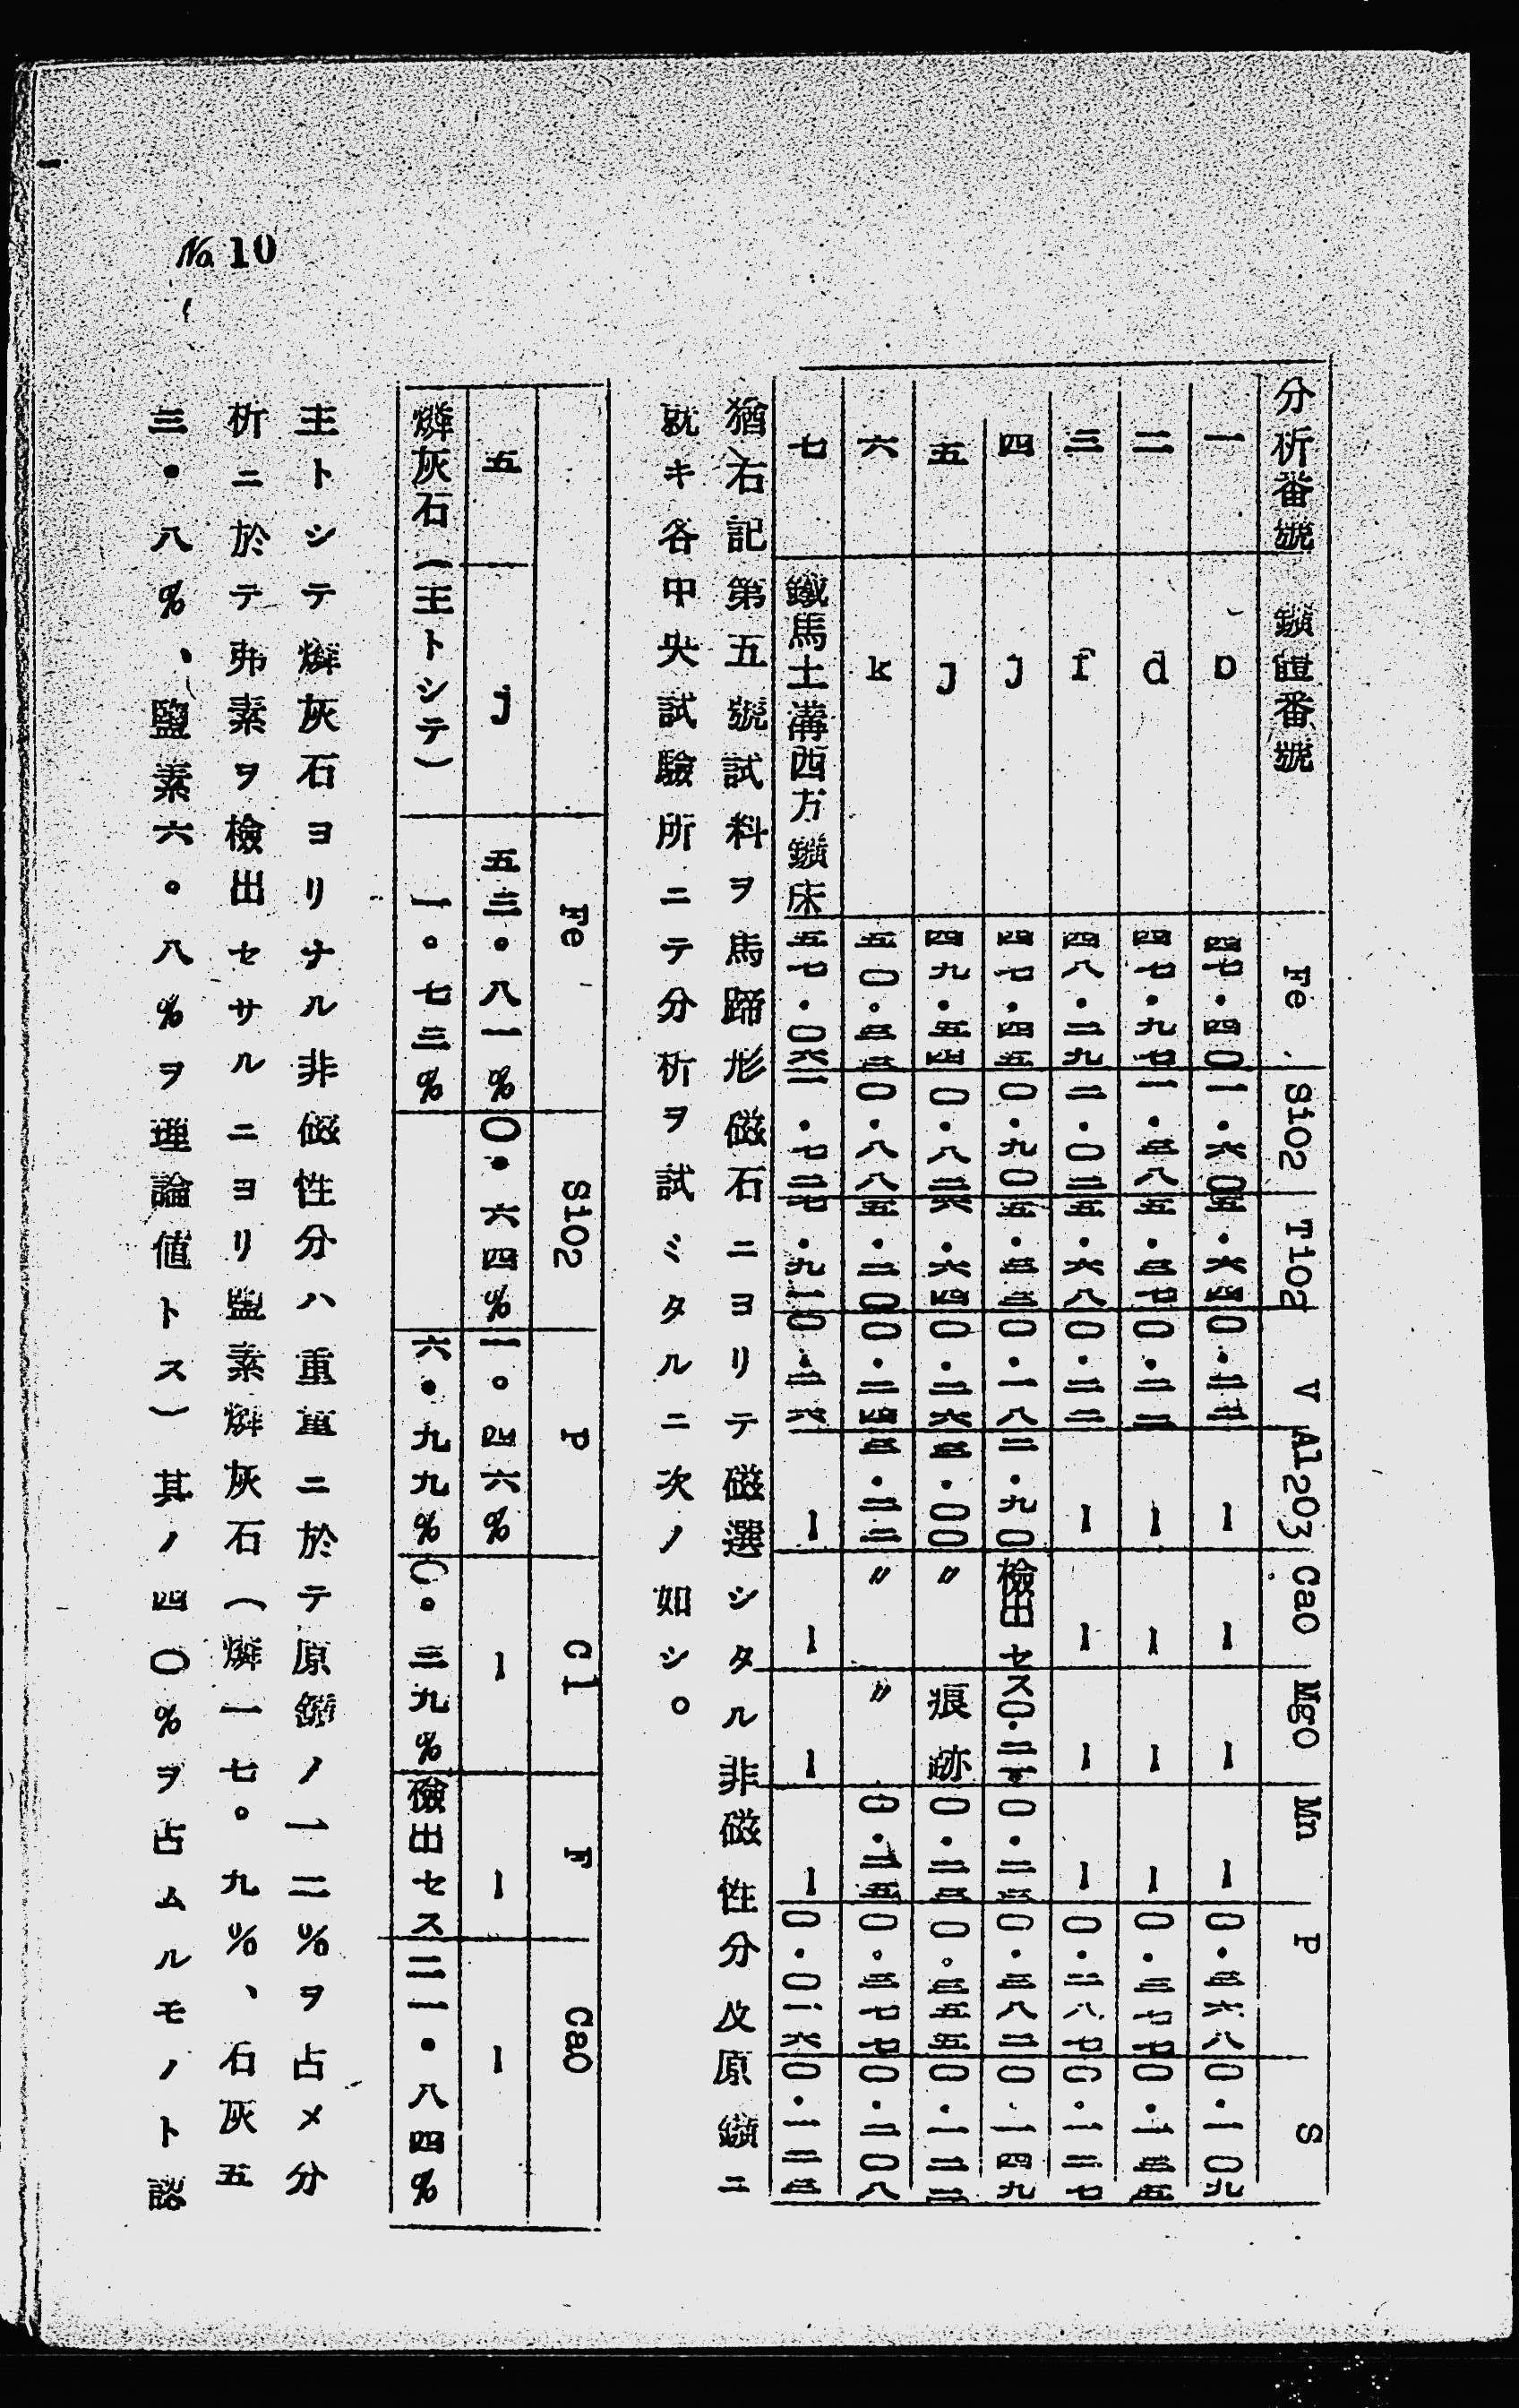 No. 10
分析番號 鑛體番號 Fe SiO2 TiO2 V Al2O3 CaO MgO Mn P S
一 b 四七・四〇 一・六〇 五・六四 〇・二三 ー ー ー ー 〇・三六八 〇・一〇九
二 d 四七・九七 一・三八 五・三七 〇・二二 ー ー ー ー 〇・三七七 〇・一三五
三 f 四八・二九 二・〇三 五・六八 〇・二二 ー ー ー ー 〇・二八七 〇・一二七
四 j 四七・四五 〇・九〇 五・三三 〇・一八 二・九〇 檢出セス 〇・二一 〇・二三 〇・三八二 〇・一四九
五 j 四九・五四 〇・八二 六・六四 〇・二六 三・〇〇 〃 痕跡 〇・二三 〇・三五五 〇・一二二
六 k 五〇・三三 〇・八八 五・二〇 〇・二四 三・二二 〃 〃 〇・二五 〇・三七七 〇・二〇八
七 鐵馬土溝西方鑛床 五七・〇六 一・七二 七・九一 〇・三六 ー ー ー ー 〇・〇一六 〇・一二三
猶右記第五號試料ヲ馬蹄形磁石ニヨリテ磁選シタル非磁性分及原鑛ニ
就キ各中央試驗所ニテ分析ヲ試ミタルニ次ノ如シ。
Fe SiO2 P Cl F CaO
五 j 五三。八一% 〇・六四% 一。四六% ー ー ー
燐灰石(主トシテ) 一。七三% 六・九九% 〇。三九% 檢出セス 二一・八四%
主トシテ燐灰石ヨリナル非磁性分ハ重量ニ於テ原鑛ノ一二%ヲ占メ分
析ニ於テ弗素ヲ檢出セサルニヨリ鹽素燐灰石(燐一七。九%、石灰五
三・八%、鹽素六。八%ヲ理論値トス)其ノ四〇%ヲ占ムルモノト認